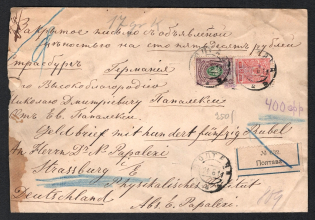 Закрытое письмо съ объявленной
цѣнностью на сто пятьдесятъ рублей
Страсбургъ Германія
Его Высокоблагородію
Николаю Дмитріевичу Папалекси
Отъ Ев. Папалекси.
Geldbrief mit hundert fünfzig Rubel
An Herrn Dr. N. Papalexi
Strassburg E
Physikalisches Institut
Deutschland
Abs. E. Papalexi.
Полтава